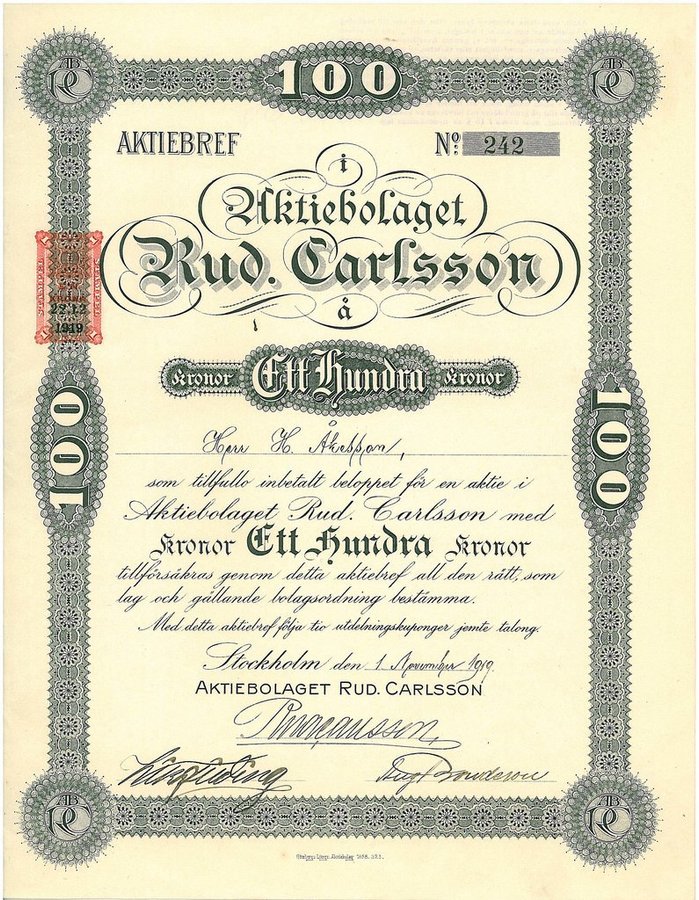 100
AKTIEBREF
Nº: 242
i
Aktiebolaget
Rud. Carlsson
å
Kronor Ett Hundra Kronor
1 1
22.12
1919
100
100
Herr H. Åkesson,
som tillfullo inbetalt beloppet för en aktie i
Aktiebolaget Rud. Carlsson med
Kronor Ett Hundra Kronor
tillförsäkras genom detta aktiebref all den rätt, som
lag och gällande bolagsordning bestämma.
Med detta aktiebref följa tio utdelningskuponger jemte talong.
Stockholm den 1 November 1919.
AKTIEBOLAGET RUD. CARLSSON